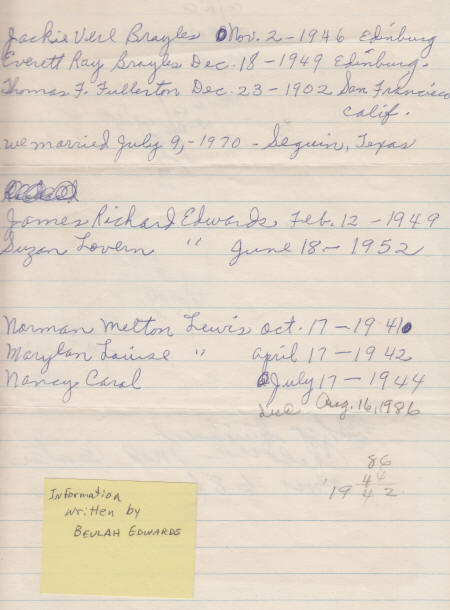 Jackie Verl Brayles Nov. 2 - 1946 Edinburg
Everett Ray Brayles Dec. 18 - 1949 Edinburg.
Thomas F. Fullerton Dec. 23 - 1902 San Francisco
Calif.
we married July 9, - 1970 - Seguin, Texas
James Richard Edwards Feb. 12 - 1949
Suzan Lovern " June 18 - 1952
Norman Melton Lewis Oct. 17 - 1941
Marylan Louise " April 17 - 1942
Nancy Carol July 17 - 1944
Aug. 16, 1986
86
44
19 42
Information
written by
BEULAH EDWARDS